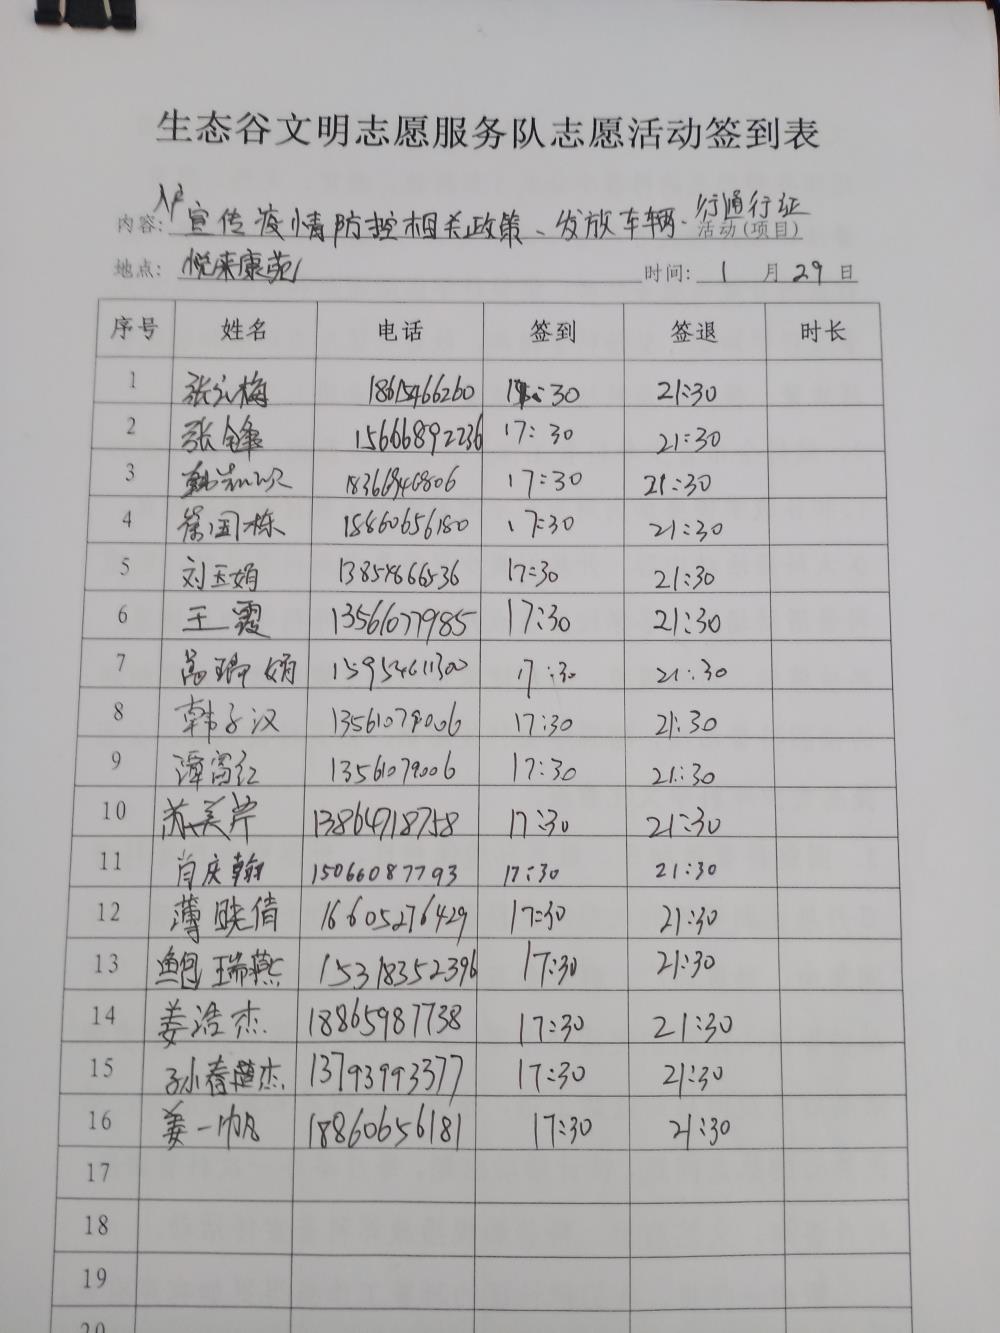 生态谷文明志愿服务队志愿活动签到表
入户
行通行证
内容: 宣传疫情防控相关政策、发放车辆 活动(项目)
地点: 悦来康苑 时间: 1 月 29 日
序号 姓名 电话 签到 签退 时长
1 张元梅 18615466260 30 21:30
2 张锋 15666892236 17:30 21:30
3 17:30 21:30
4 国栋 18860656180 17:30 21:30
5 刘玉娟 17:30 21:30
6 王霞 13561077985 17:30 21:30
7 娟 15954611300 17:30 21:30
8 韩子汉 13561079006 17:30 21:30
9 谭富红 13561079006 17:30 21:30
10 苏美芹 13864718758 17:30 21:30
11 肖庆翰 15066087793 17:30 21:30
12 薄晓倩 16605276429 17:30 21:30
13 鲍瑞燕 15318352396 17:30 21:30
14 姜浩杰 18865987738 17:30 21:30
15 孙春杰 13793993377 17:30 21:30
16 姜一帆 18860656181 17:30 21:30
17
18
19
20